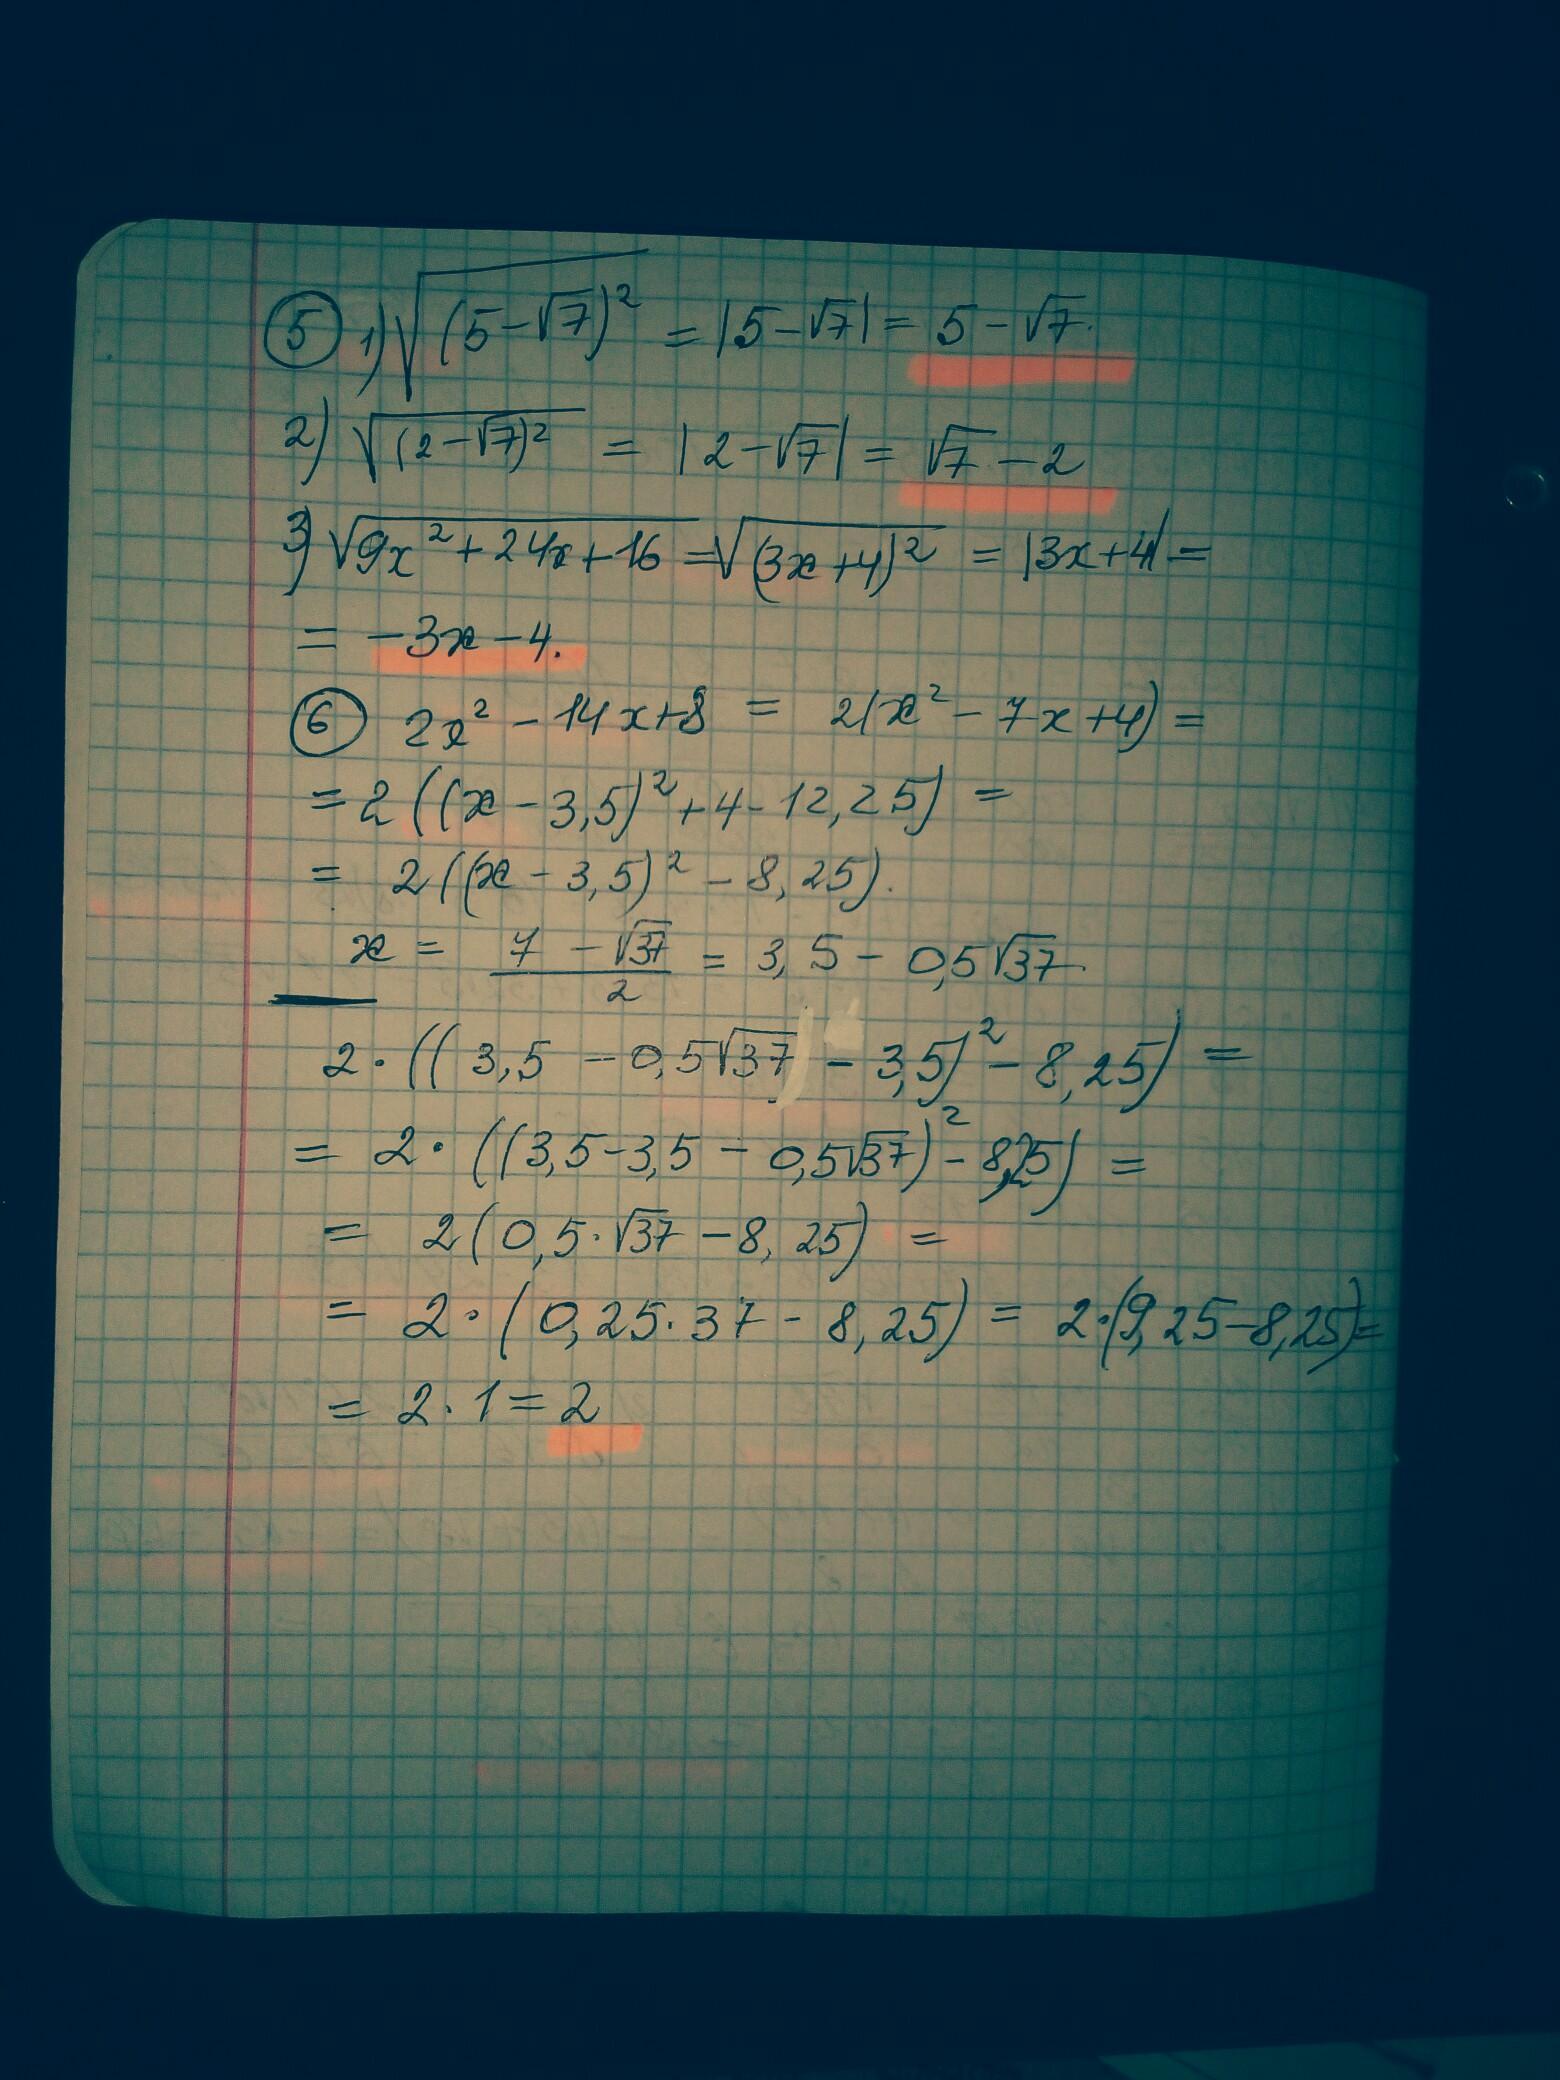 ⑤ 1) √(5-√7)² = |5-√7| = 5-√7.
2) √(2-√7)² = |2-√7| = √7-2
3) √9x²+24x+16 = √(3x+4)² = |3x+4| =
= -3x-4.
⑥ 2x²-14x+8 = 2(x²-7x+4) =
= 2((x-3,5)²+4-12,25) =
= 2((x-3,5)²-8,25).
x = (7-√37)/2 = 3,5-0,5√37
2·((3,5-0,5√37)-3,5)²-8,25) =
= 2·((3,5-3,5-0,5√37)²-8,25) =
= 2(0,5·√37-8,25) =
= 2·(0,25·37-8,25) = 2·(9,25-8,25) =
= 2·1=2